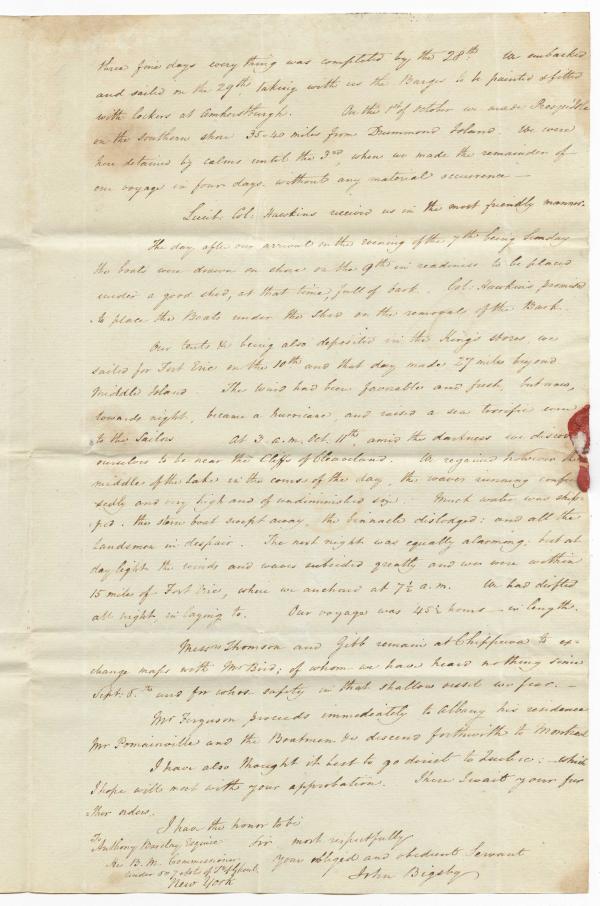 three fine days every thing was completed by the 28th. We embarked
and sailed on the 29th taking with us the Barges to be painted & fitted
with lockers at Amherstburgh. On the 1st of October we made Presqu'Isle
on the southern shore 35-40 miles from Drummond Island. We were
here detained by calms until the 3rd, when we made the remainder of
our voyage in four days without any material occurrence —
Lieut. Col: Hawkins received us in the most friendly manner.
The day after our arrival on the evening of the 7th being Sunday
the boats were drawn on shore on the 9th in readiness to be placed
under a good shed, at that time, full of bark. Col: Hawkins promised
to place the Boats under the Shed on the removal of the Bark.
Our tents &c being also deposited in the King's stores, we
sailed for Fort Erie on the 10th and that day made 27 miles beyond
Middle Island. The wind had been favorable and fresh, but now,
towards night, became a hurricane, and raised a sea terrific even
to the Sailors At 3. a.m. Oct. 11th, amid the darkness we discov
ourselves to be near the Cliffs of Cleaveland. We regained however the
middle of the Lake in the course of the day, the waves running confu-
sedly and very high and of undiminished size. Much water was ship-
ped. the stern boat swept away. the binnacle dislodged: and all the
landsmen in despair. The next night was equally alarming: but at
day light the winds and waves subsided greatly and we were within
15 miles of Fort Erie, where we anchored at 7½ a.m. We had drifted
all night in laying to. Our voyage was 45½ hours — in length.
Messrs Thomson and Gibb remain at Chippewa to ex-
change maps with Mr Bird; of whom we have heard nothing since
Sept. 8.th and for whose safety in that shallow vessel we fear. —
Mr Ferguson proceeds immediately to Albany his residence
Mr Pomainville and the Boatmen &c descend forthwith to Montreal
I have also thought it best to go direct to Quebec: which
I hope will meet with your approbation. There I wait your fur
ther orders.
I have the honor to be
To
Anthony Barclay Esquire Sir most respectfully
His B. M. Commissioner your obliged and obedient Servant
under 6 & 7 Arts of Ghent
New York John Bigsby